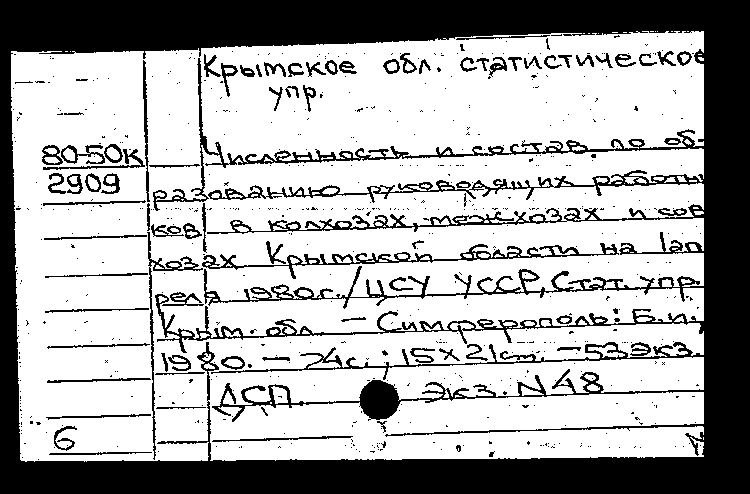 Крымское обл. статистическое
упр.
80-50к
2909
Численность и состав по об-
разованию руководящих работни
ков в колхозах, межхозах и сов
хозах Крымской области на 1 ап
реля 1980г./ЦСУ УССР, Стат. упр.
Крым. обл. — Симферополь: Б.и.,
1980. — 24с.; 15×21см. — 53экз.
ДСП. Экз. N48
6